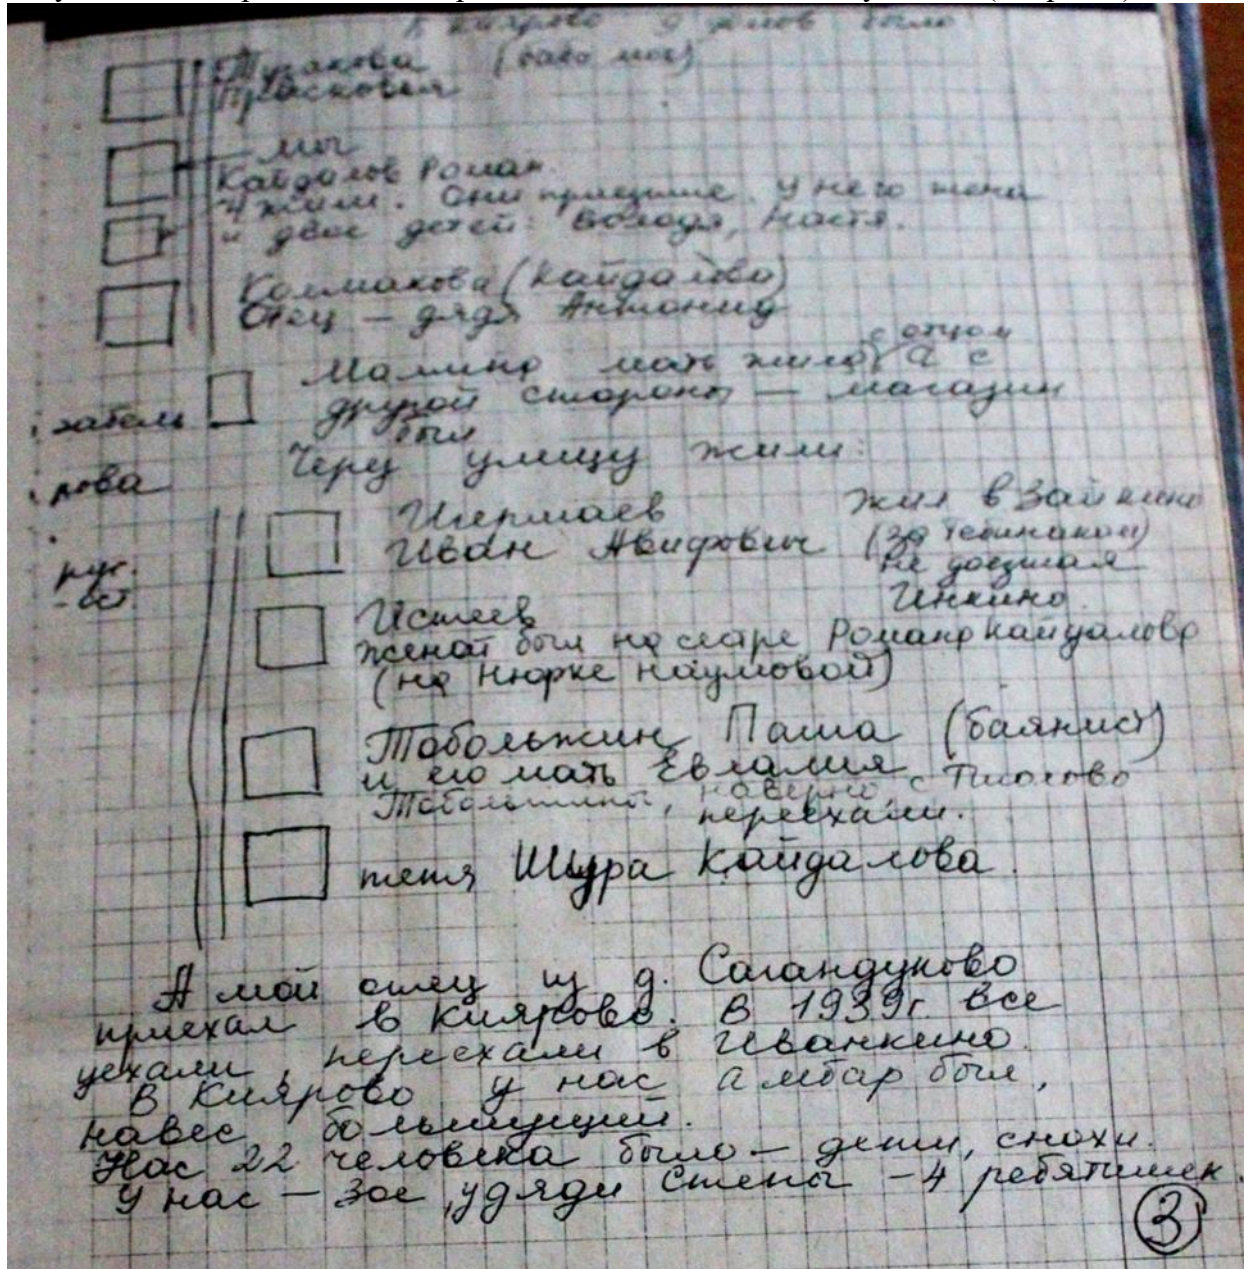 В Киярово 9 домов было
Тузакова (баба моя)
Прасковья
мы
Кайдалов Роман.
4 жили. Они приезжие. У него жена
и двое детей: Володя, Настя.
Колмакова (Кайдалова)
Отец – дядя Антонину
с отцом
Мамина мать жила, а с
другой стороны – магазин
был
затель
Через улицу жили:
рова
Ижермаев жил в Зайкино
Иван Авифович (за Тебинаком)
не доезжая
Инкино.
рус.
-ост.
Истеев
женат был на сестре Романа Кайдалова
(на Нюрке Наумовой)
Тобольжин Паша (баянист)
и его мать Евлалия
Тобольжины, наверно с
переехали.
тетя Шура Кайдалова.
А мой отец из д. Сагандуково
приехал в Киярово. В 1939г. все
уехали, переехали в Иванкино.
В Киярово у нас амбар был,
навес большущий.
Нас 22 человека было – дети, снохи.
У нас – зое, у дяди Степы – 4 ребятишек.
3